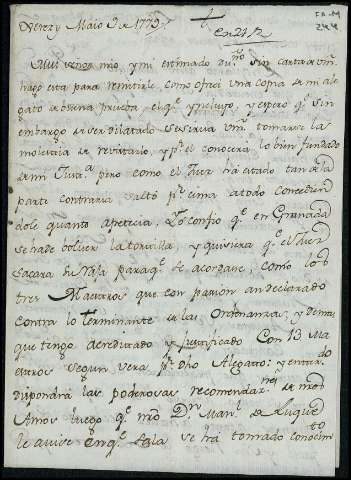 Xerez y Maio 9 de 1779
†
en 21/2
FA-M
244
Mui venor mio y mi estimado du.ño sin carta de Vm.
hago esta para remitirle como ofreci una copia de mi ale
gato de buena prueba, el q.e ynclujo, y espero q.e sin
embargo de ser dilatado se servira Vm. tomarse la
molestia de revistarlo, y p.r el conocerá lo bien fundado
de mi Just.a pero como el Juez ha estado tan de la
parte contraria saltó p.r cima de todo concedien
dole quanto apetecia. Yo confio q.e en Granada
se ha de bolver la tortilla, y quisiera q.e el Juez
sacara su Tasa para q.e se acordase, como los
tres Maestros que con pasion an declarado
contra lo terminante de las Ordenanzas, y demas
que tengo acreditado y justificado con 13 Ma
estros segun vera p.r dho Alegato: y entre to
dispondrá las poderosas recomendac.nes de nros
Amos luego q.e nro D.n Man.l de Luque
le avise en q.e Sala se ha tomado conocim.to